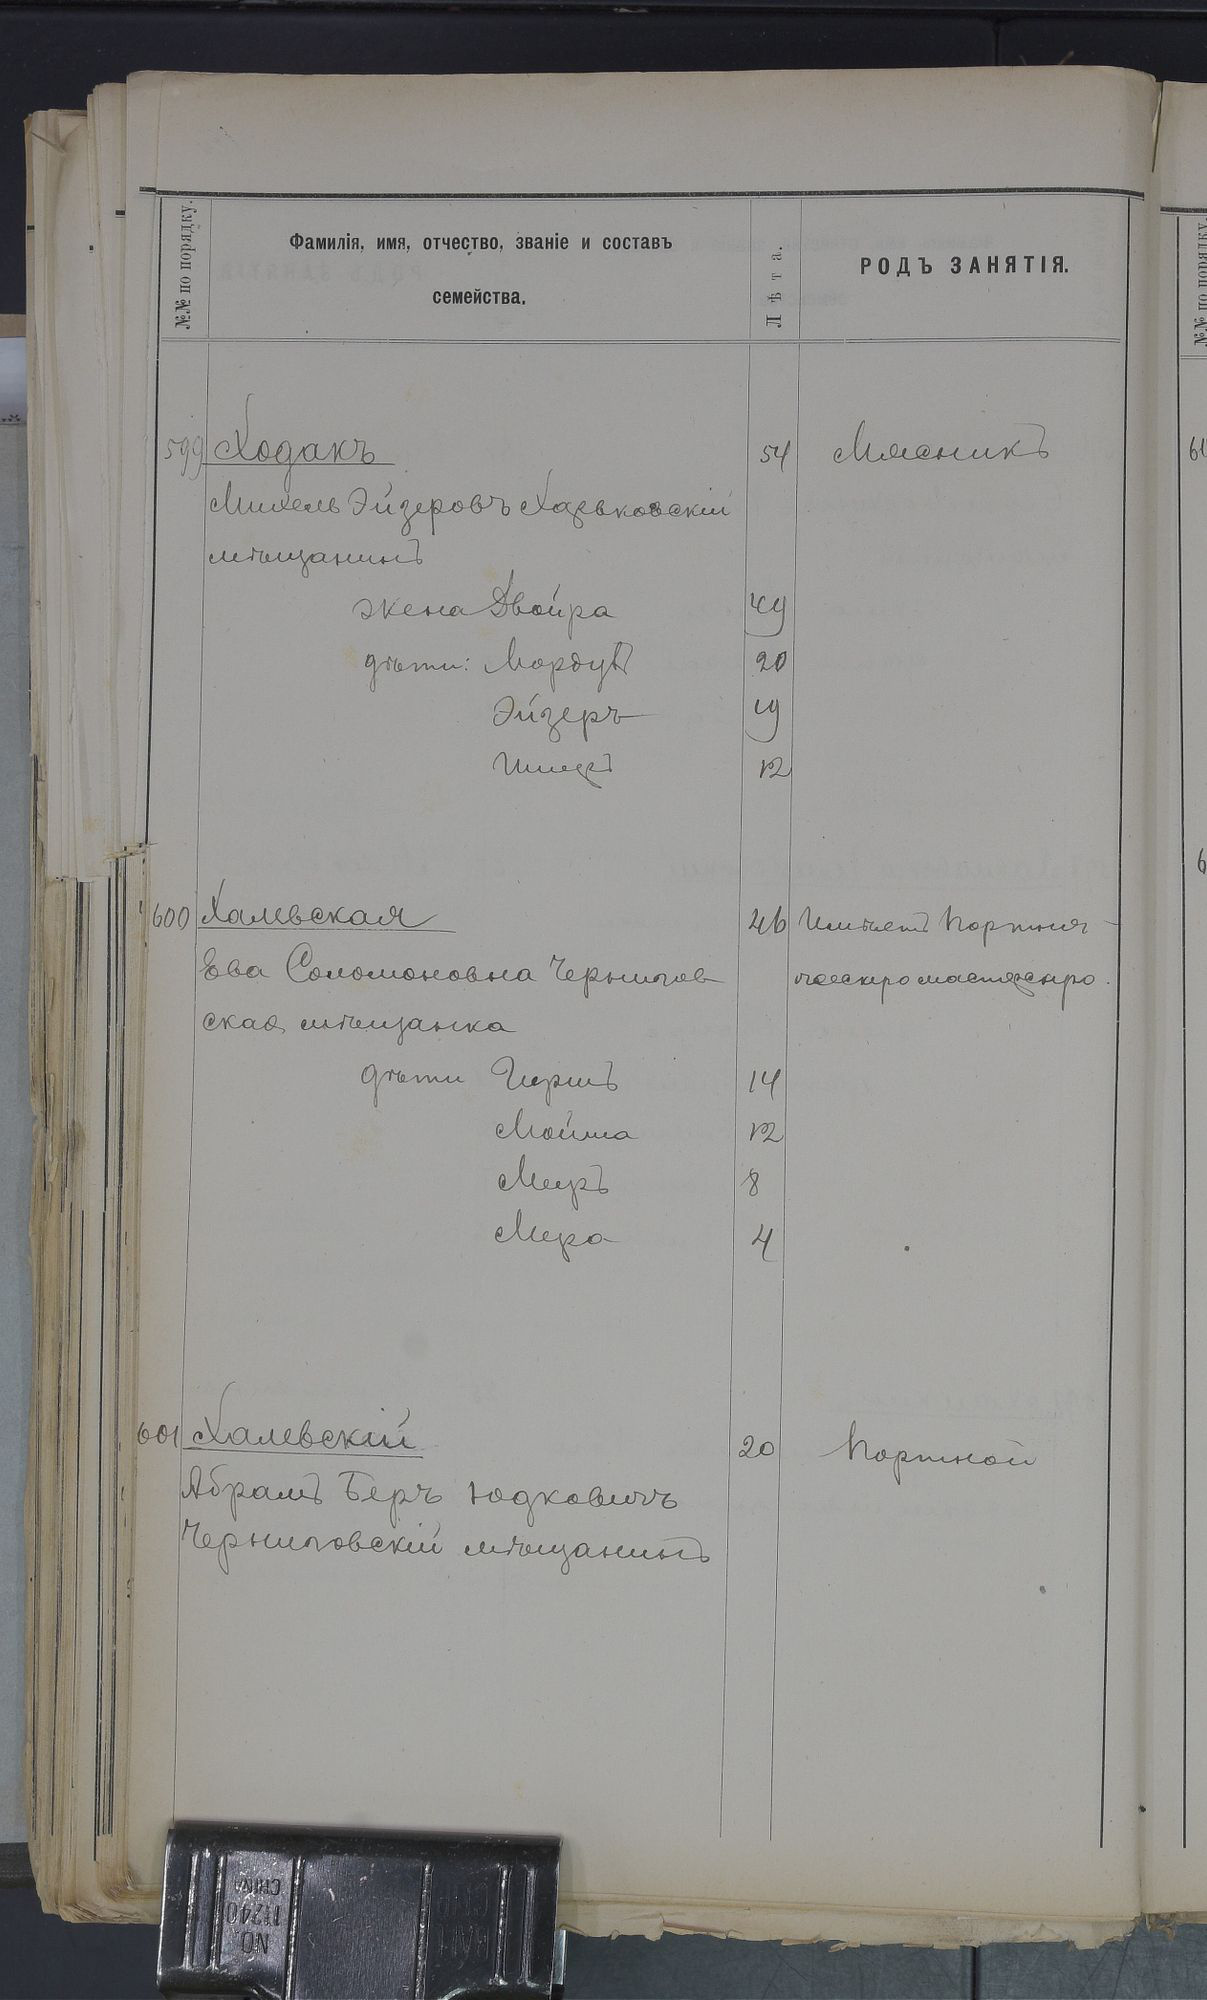 №№ по порядку.
Фамилія, имя, отчество, званіе и составъ
семейства.
Лѣта.
РОДЪ ЗАНЯТІЯ.
599 Ходакъ 54 Мясникъ
Михель Эйзеровъ Харьковскій
мѣщанинъ
жена Двойра 49
дѣти: Мордухъ 20
Эйзеръ 19
12
600 Халевская 46 Имѣетъ портня-
Ева Соломоновна Чернигов
ская мѣщанка
ческую мастерскую.
дѣти Гиршъ 14
Мойша 12
Мееръ 8
Мера 4
601 Халевскій 20 Портной
Абрамъ Беръ Юдковичъ
Черниговскій мѣщанинъ
№№ по порядку.
NO.
11240
CHINA